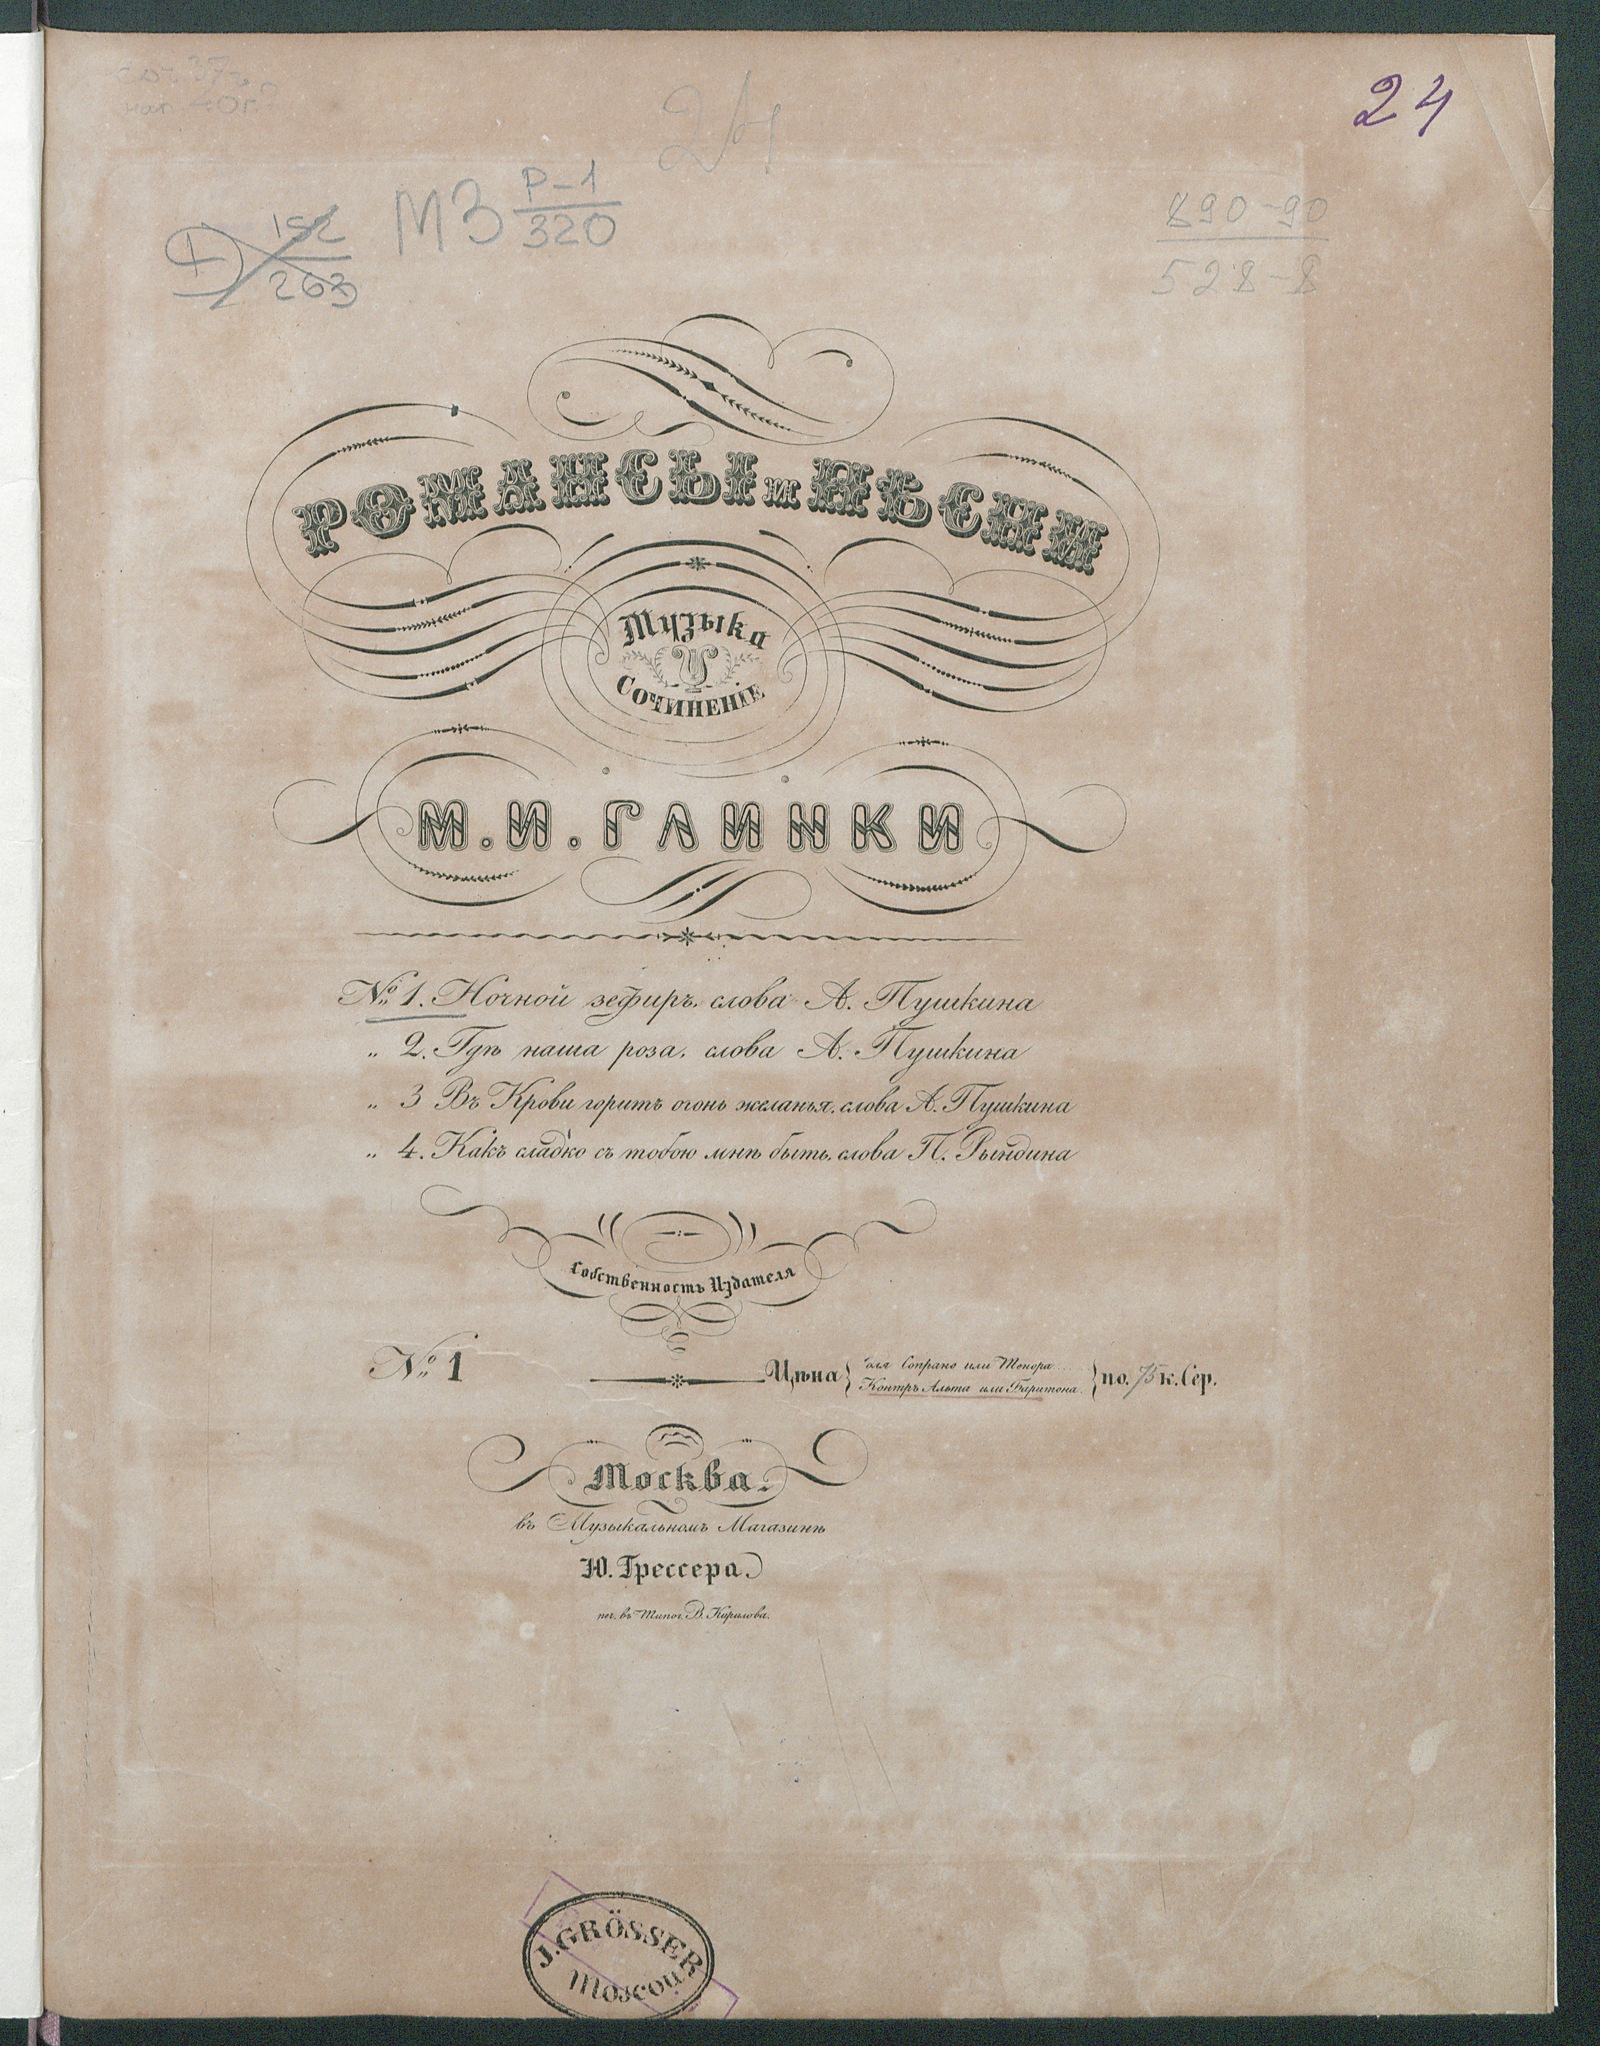 24
24
М3 Р-1
320
152
263
890-90
528-8
РОМАНСЫ и ПѢСНИ
Музыка
Сочиненіе
М. И. ГЛИНКИ
№ 1. Ночной зефиръ. слова А. Пушкина
„ 2. Гдѣ наша роза. слова А. Пушкина
„ 3 Въ Крови горитъ огонь желанья. слова А. Пушкина
„ 4. Какъ сладко съ тобою мнѣ быть. слова П. Рындина
Собственность Издателя
№ 1
Цѣна { для Сопрано или Тенора
Контръ Альта или Баритона. } по. 75 к. Сер.
Москва.
въ Музыкальномъ Магазинѣ
Ю. Грессера.
печ. въ Типог. В. Кирилова.
J. GRÖSSER
Moscou